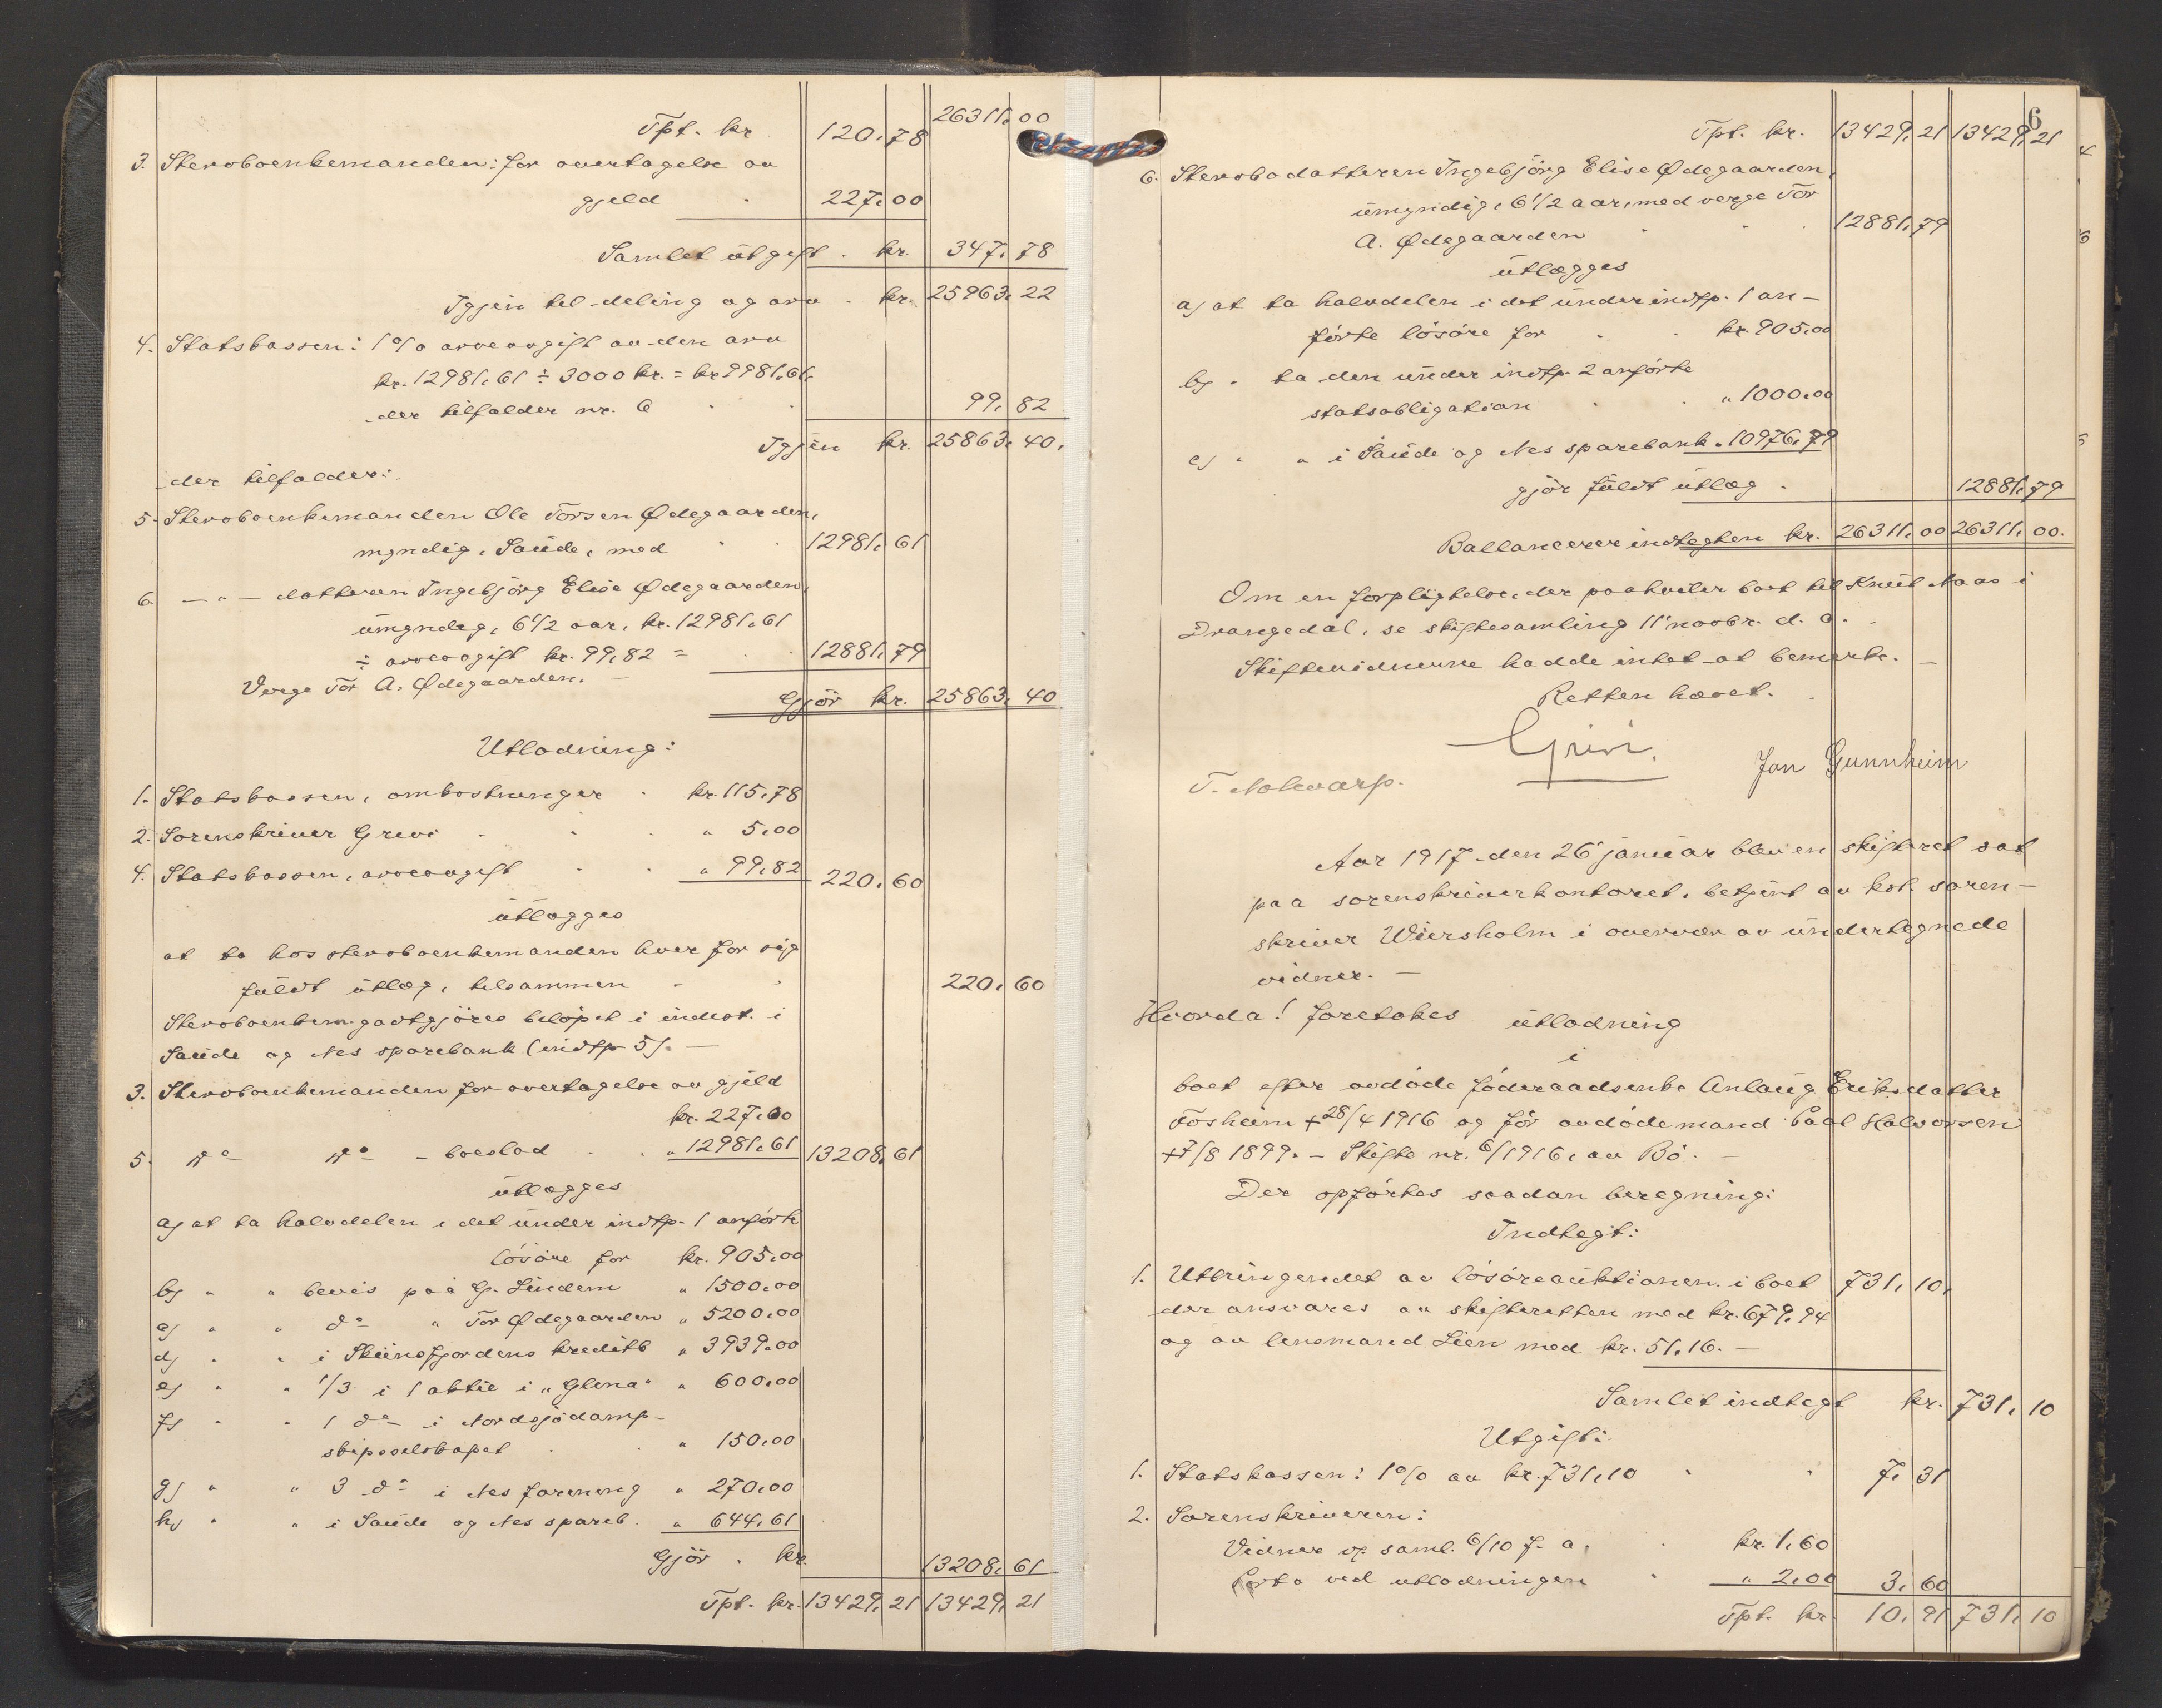 Tpt. kr. 120,78 26311,00
3. Stervboenkemanden: for overtagelse av
gjeld 227,00
Samlet utgift . kr. 347,78
Igjen til deling og arv . kr. 25963,22
4. Statskassen: 1% arveavgift av den arv
kr. 12981,61 ÷ 3000 kr. = kr. 9981,61,
der tilfalder nr. 6 99,82
Igjen kr. 25863,40.
der tilfalder:
5. Stervboenkemanden Ole Torsen Ødegaarden,
myndig, Saude, med 12981,61
6. —"— datteren Ingebjörg Elise Ødegaarden,
umyndig, 6 1/2 aar, kr. 12981,61
÷ arveavgift kr. 99,82 = 12881,79
Verge Tor A. Ødegaarden. —
Gjör kr. 25863,40
Utlodning:
1. Statskassen, omkostninger . kr. 115,78
2. Sorenskriver Grivi " 5,00
4. Statskassen, arveavgift " 99,82 220,60
utlægges
at ta hos stervboenkemanden hver for sig
fuldt utlæg, tilsammen 220,60
Stervboenkem. godtgjöres belöpet i indest. i
Saude og Nes sparebank (indtp 5). —
3. Stervboenkemanden for overtagelse av gjeld
kr. 227,00
5. do do - boeslod " 12981,61 13208,61
utlægges
a) at ta halvdelen i det under indtp. 1 anförte
lösöre for kr. 905,00
b) " " bevis paa G. Lindem " 1500,00
c) " " do " Tor Ødegaarden " 5200,00
d) " " i Skiensfjordens kreditb " 3939,00
e) " " 1/3 i 1 aktie i "Glena" " 600,00
f) " " 1 do i Nordsjödamp-
skipsselskapet " 150,00
g) " " 3 do i Nes forening " 270,00
h) " " i Saude og Nes spareb. " 644,61
Gjör . kr. 13208,61
Tpt. kr. 13429,21 13429,21
6
Tpt. kr. 13429,21 13429,21
6. Stervbodatteren Ingebjörg Elise Ødegaarden,
umyndig, 6 1/2 aar, med verge Tor
A. Ødegaarden 12881,79
utlægges
a) at ta halvdelen i det under indtp. 1 an-
förte lösöre for kr. 905,00
b) " ta den under indtp. 2 anförte
statsobligation " 1000,00
c) " " i Saude og Nes sparebank " 10976,79
gjör fuldt utlæg . 12881,79
Ballancerer indtegten kr. 26311,00 26311,00.
Om en forpligtelse, der paahviler boet til Knut Naas i
Drangedal, se skiftesamling 11' novbr. d. a.
Skiftevidnerne hadde intet at bemerke. —
Retten hævet.
Grivi.
Jon Gunnheim
Aar 1917 den 26' januar blev en skifteret sat
paa sorenskriverkontoret, betjent av kst. soren-
skriver Wiersholm i overvær av undertegnede
vidner. —
Hvorda! foretokes utlodning
i
boet efter avdöde föderaadsenke Anlaug Eriksdatter
Fosheim + 28/4 1916 og för avdöde mand Paal Halvorsen
+ 7/8 1899. — Skifte nr. 6/1916, av Bö. —
Der opförtes saadan beregning:
Indtegt:
1. Utbringendet av lösöreauktionen i boet 731,10,
der ansvares av skifteretten med kr. 679,94
og av lensmand Lien med kr. 51,16. —
Samlet indtegt kr. 731,10
Utgift:
1. Statskassen: 1% av kr. 731,10 7,31
2. Sorenskriveren:
Vidner v. saml. 6/10 f. a. kr. 1,60
Porto ved utlodningen " 2,00 3,60
Tpt. kr. 10,91 731,10